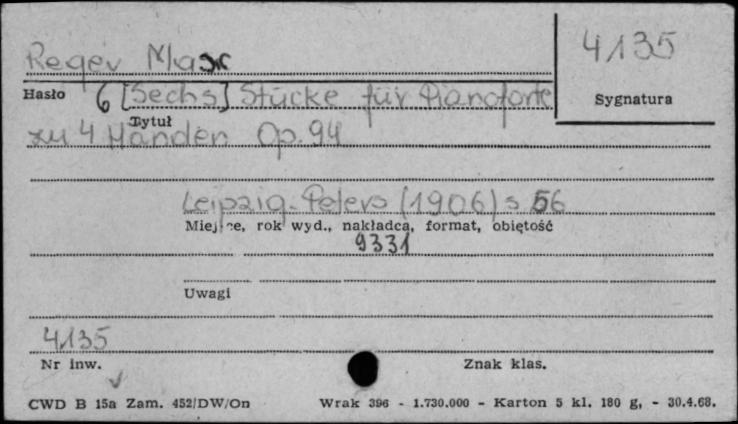 Reger Max
4135
Hasło
Sygnatura
6 [Sechs] Stücke für Pianoforte
Tytuł
zu 4 Händen Op. 94
Leipzig-Peters (1906) s 56
Miejsce, rok wyd., nakładca, format, objętość
9331
Uwagi
4135
Nr inw.
Znak klas.
CWD B 15a Zam. 452/DW/On Wrak 396 - 1.730.000 - Karton 5 kl. 180 g, - 30.4.68.